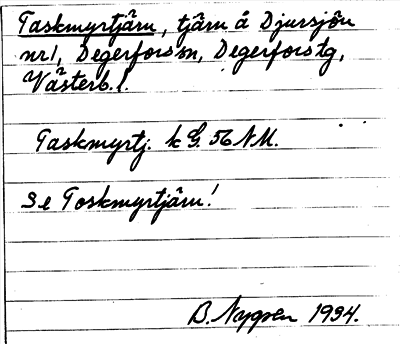 Taskmyrtjärn, tjärn å Djursjön
nr 1, Degerfors sn, Degerfors tg,
Västerb. l.
Taskmyrtj. k G. 56 NM.
Se Toskmyrtjärn!
B. Nygren 1934.